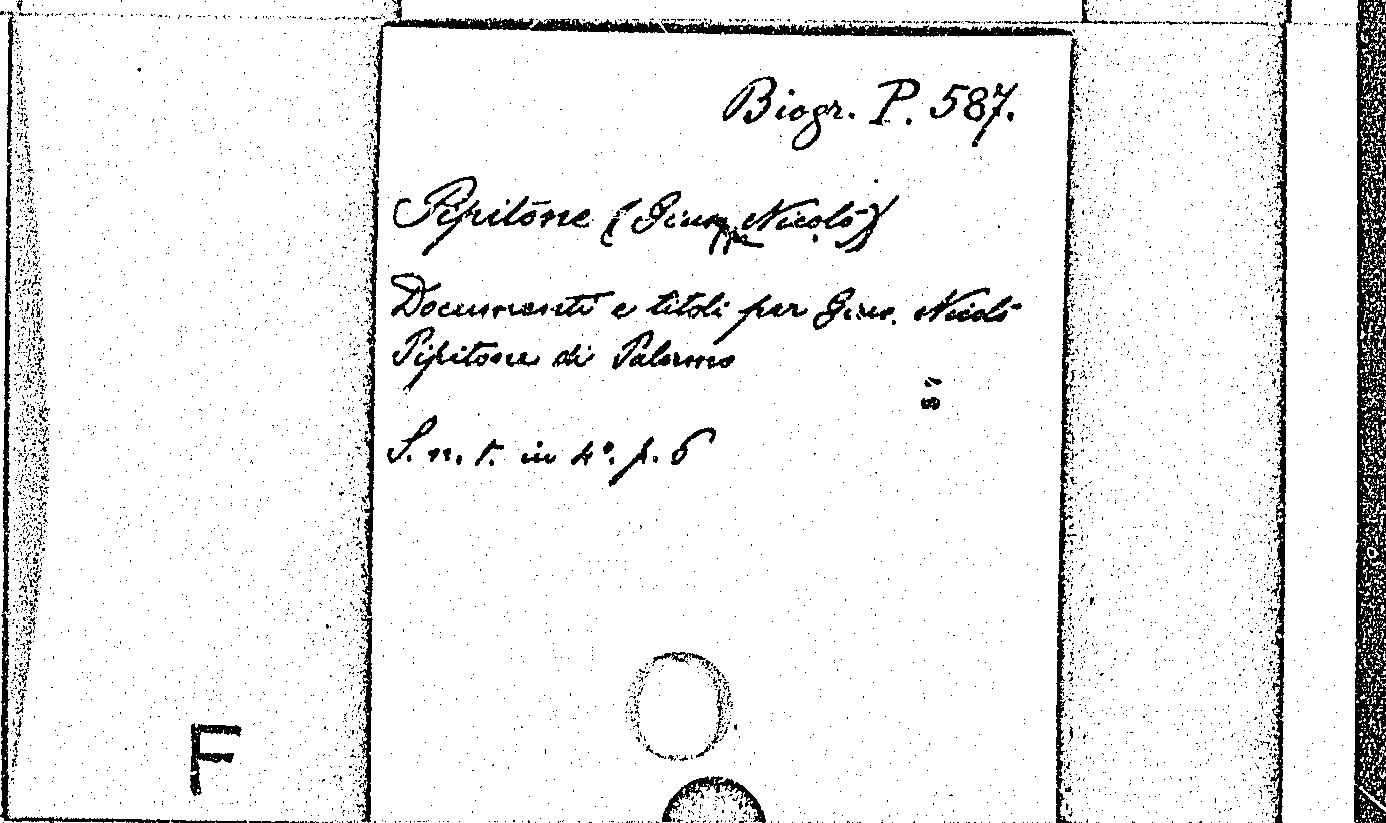 Biogr. P. 587.
Pipitone (Gius. Nicolò)
Documenti e titoli per Gius. Nicolò
Pipitone di Palermo
S. n. t. in 4°. p. 6
F